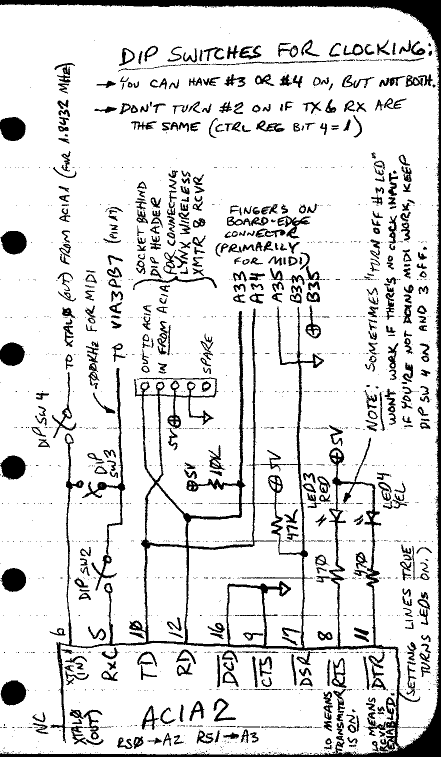 DIP SWITCHES FOR CLOCKING:
→ YOU CAN HAVE #3 OR #4 ON, BUT NOT BOTH.
→ DON'T TURN #2 ON IF TX & RX ARE
THE SAME (CTRL REG BIT 4 = 1)
TO XTALØ (OUT) FROM ACIA1 (FOR 1.8432 MHz)
DIP SW 4
500KHz FOR MIDI
TO VIA3PB7
DIP
SW3
DIP SW2
SOCKET BEHIND
DIP HEADER
FOR CONNECTING
LYNX WIRELESS
XMTR & RCVR
OUT TO ACIA
IN FROM ACIA
5V
SPARE
FINGERS ON
BOARD-EDGE
CONNECTOR
(PRIMARILY
FOR MIDI)
A33
A34
A35
B33
B35
5V
10K
5V
47K
LED3
RED
5V
LED4
YEL
470
470
NOTE: SOMETIMES "TURN OFF #3 LED"
WON'T WORK IF THERE'S NO CLOCK INPUT.
IF YOU'RE NOT DOING MIDI WORK, KEEP
DIP SW 4 ON AND 3 OFF.
(SETTING LINES TRUE
TURNS LEDS ON.)
6
5
10
12
16
9
17
8
11
N/C
XTALØ
(OUT)
XTAL1
(IN)
RxC
TD
RD
DCD
CTS
DSR
RTS
DTR
LO MEANS
TRANSMITER
IS ON.
LO MEANS
RCVR IS
ENABLED.
ACIA 2
RSØ → A2 RS1 → A3